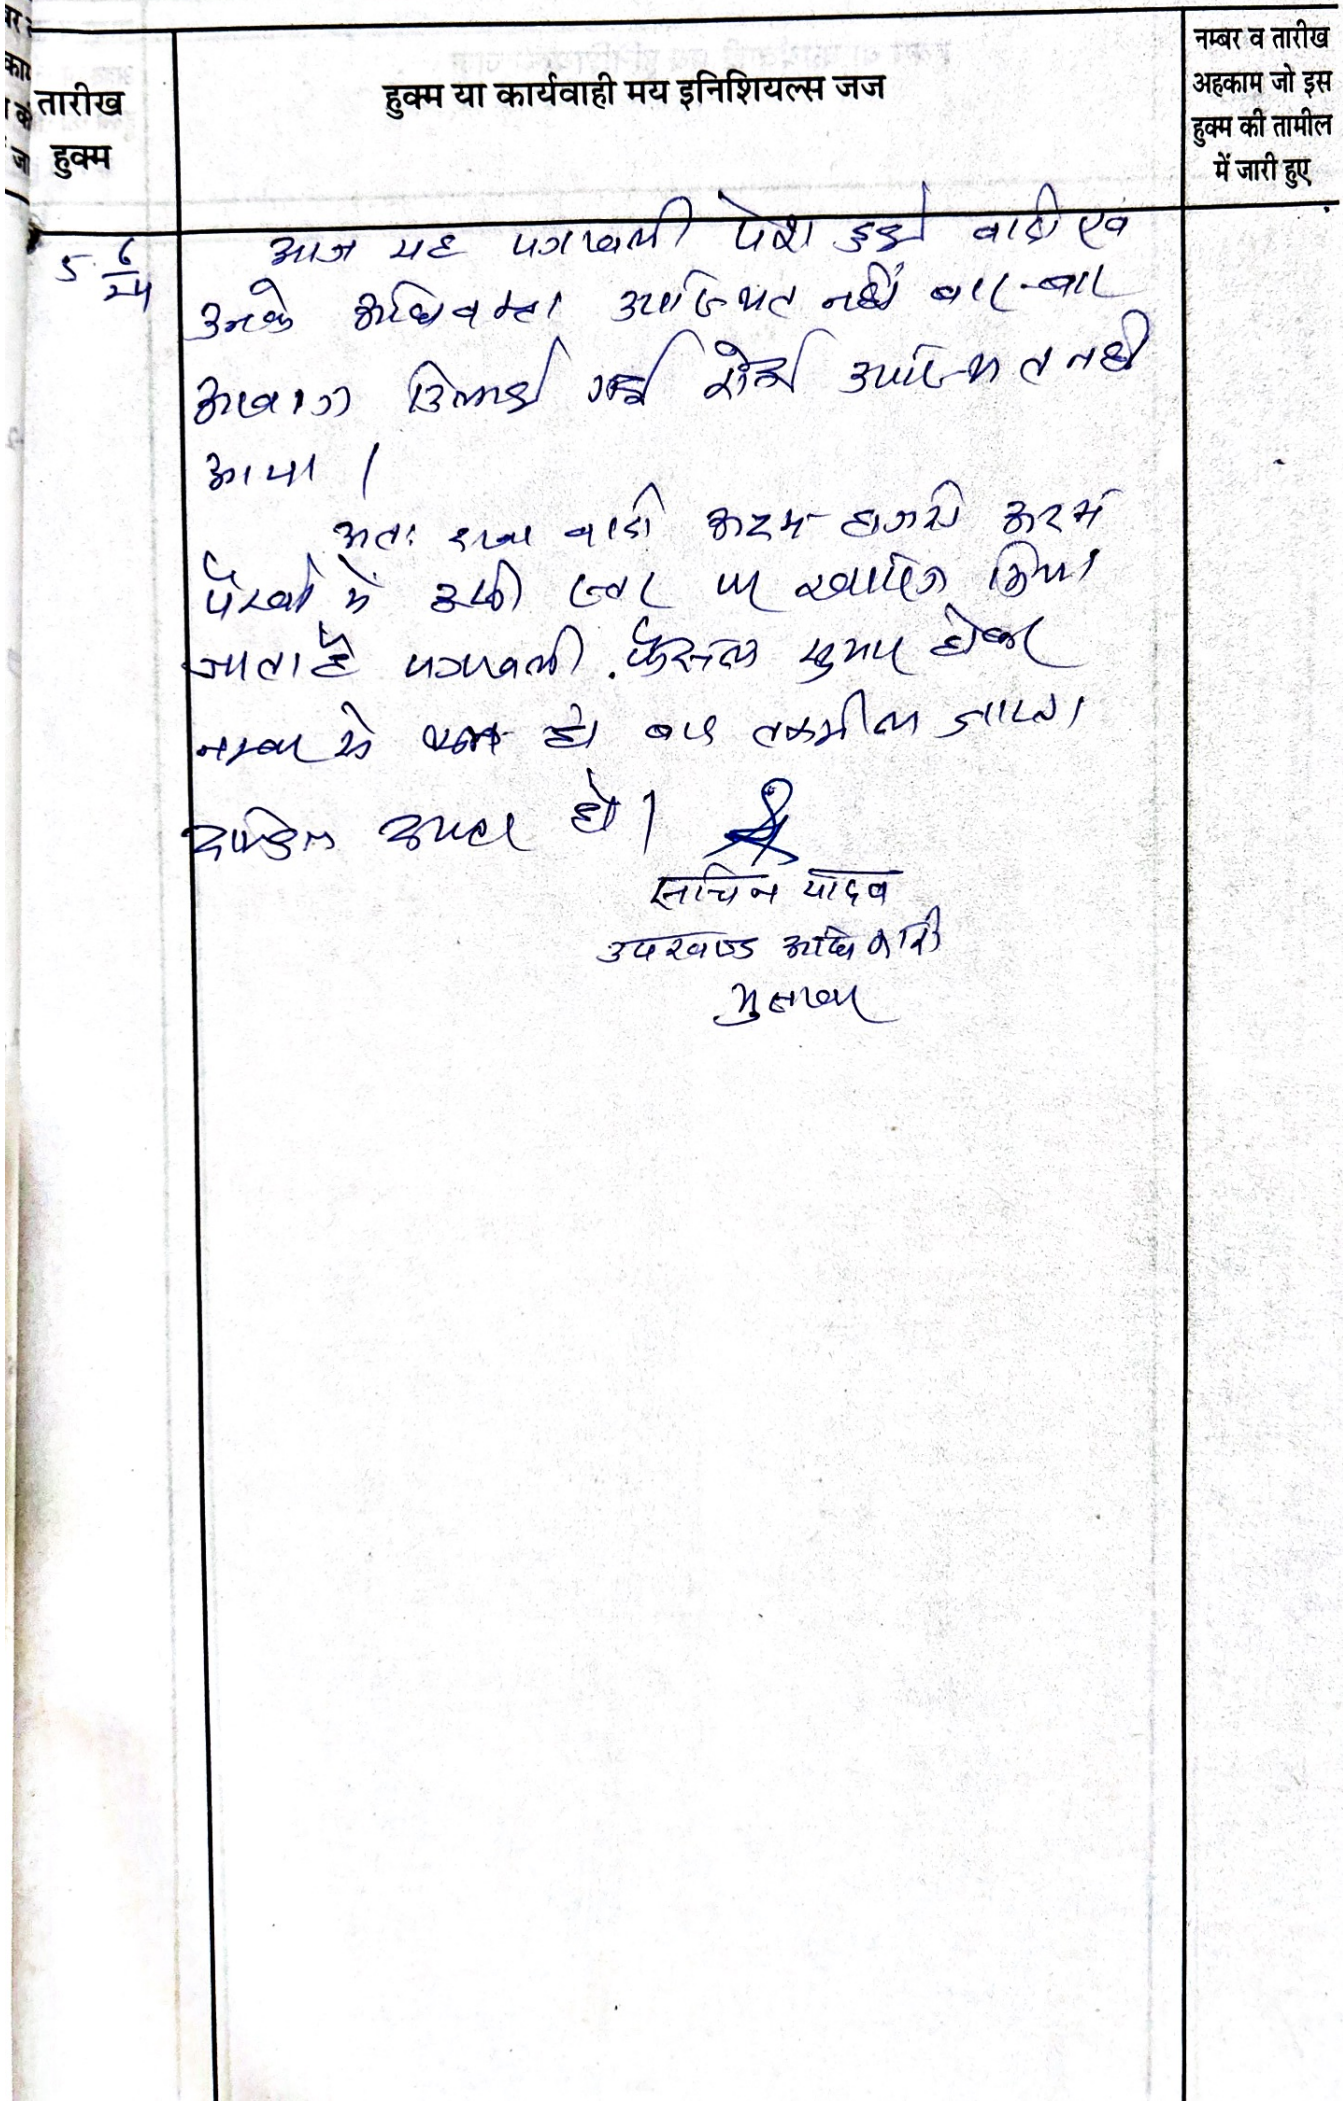 तारीख
हुक्म
हुक्म या कार्यवाही मय इनिशियल्स जज
नम्बर व तारीख
अहकाम जो इस
हुक्म की तामील
में जारी हुए
5 6/24
आज यह पत्रावली पेश हुई वादी एवं
उनके अधिवक्ता उपस्थित नहीं बार-बार
आवाज दिलाई गई कोई उपस्थित नही
आया।
अतः वाद वादी अदम हाजरी अदम
पैरवी में इसी स्तर पर खारिज किया
जाता है पत्रावली फैसल शुमार होकर
नम्बर से कम हो बाद तकमील जाप्ता
दाखिल दफ्तर हो।
सचिन यादव
उपखण्ड अधिकारी
भुसावर